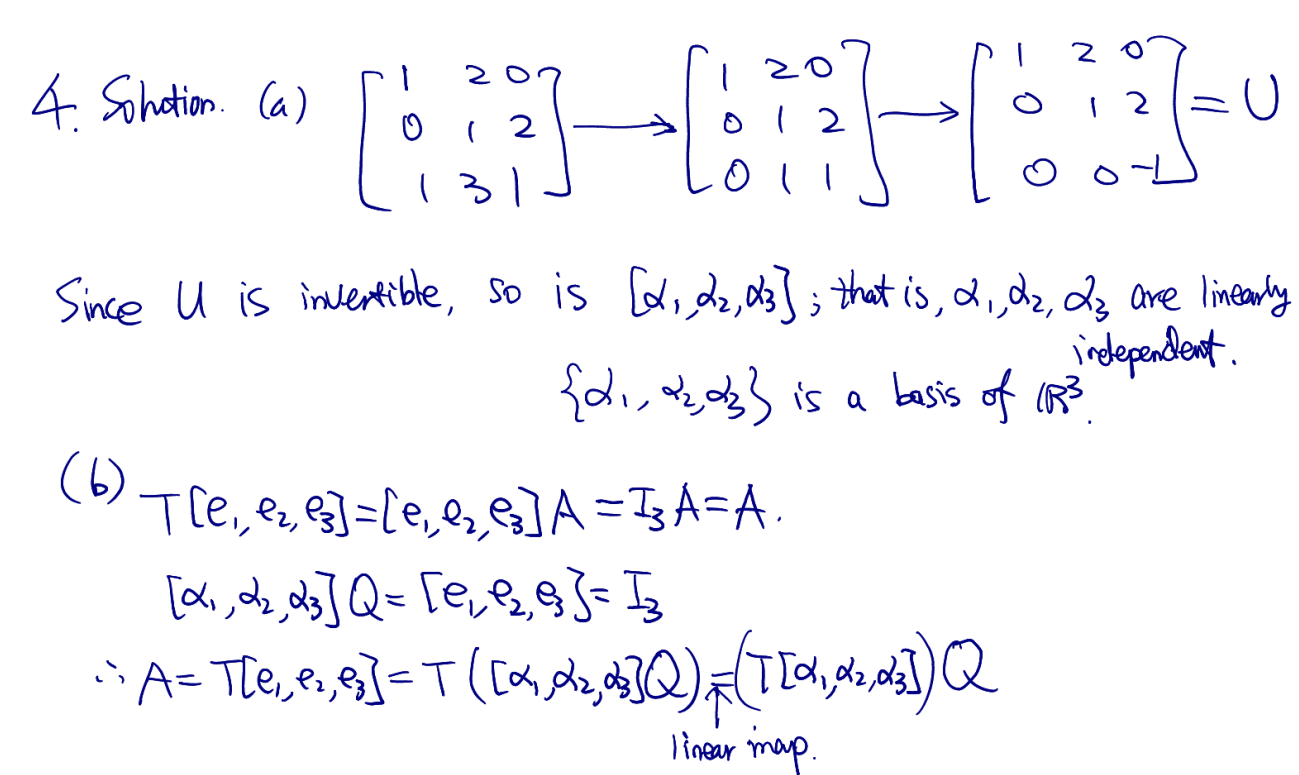 4. Solution. (a) [1 2 0; 0 1 2; 1 3 1] → [1 2 0; 0 1 2; 0 1 1] → [1 2 0; 0 1 2; 0 0 -1] = U
Since U is invertible, so is [α₁, α₂, α₃]; that is, α₁, α₂, α₃ are linearly
independent.
{α₁, α₂, α₃} is a basis of ℝ³.
(b) T[e₁, e₂, e₃] = [e₁, e₂, e₃] A = I₃ A = A.
[α₁, α₂, α₃] Q = [e₁, e₂, e₃] = I₃
∴ A = T[e₁, e₂, e₃] = T([α₁, α₂, α₃] Q) = (T[α₁, α₂, α₃]) Q
↑
linear map.